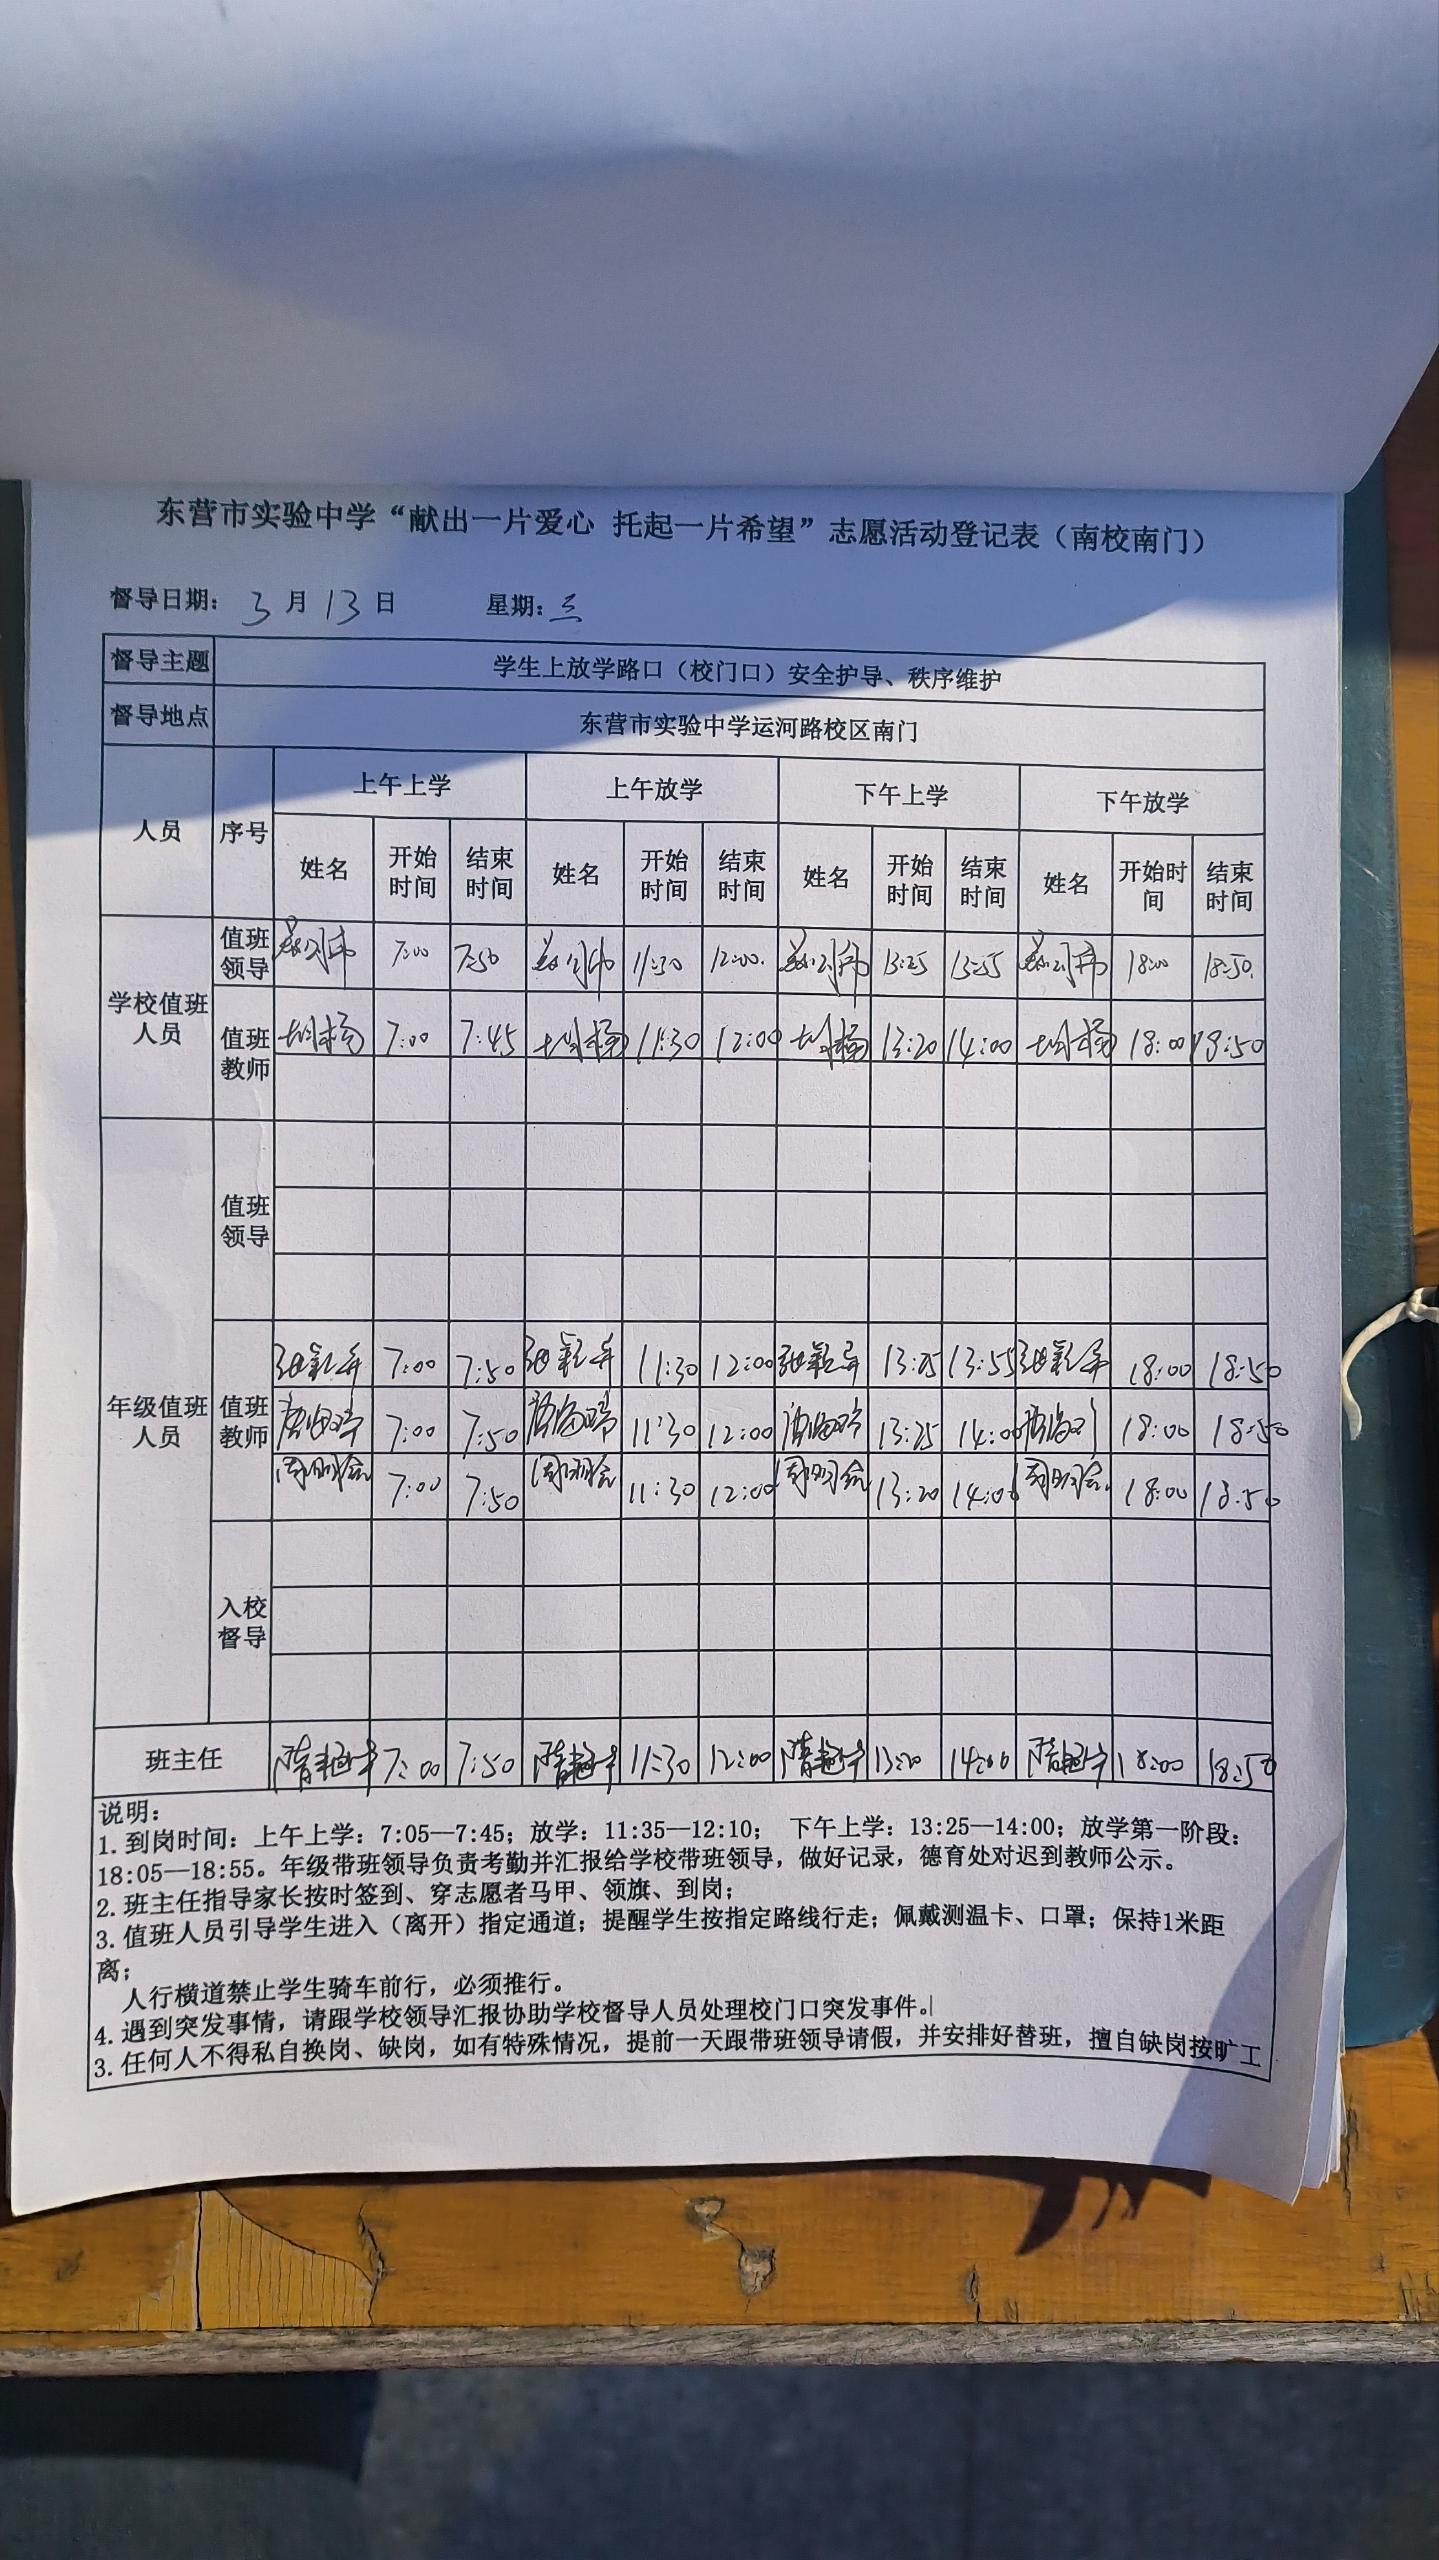 东营市实验中学“献出一片爱心 托起一片希望”志愿活动登记表（南校南门）
督导日期： 3 月 13 日 星期：三
督导主题 学生上放学路口（校门口）安全护导、秩序维护
督导地点 东营市实验中学运河路校区南门
人员 序号 上午上学 上午放学 下午上学 下午放学
姓名 开始时间 结束时间 姓名 开始时间 结束时间 姓名 开始时间 结束时间 姓名 开始时间 结束时间
学校值班人员
值班领导 7:00 7:50 11:30 12:00. 13:25 13:55 18:00 18:50.
值班教师 7:00 7:45 11:30 12:00 13:20 14:00 18:00 18:50
年级值班人员
值班领导
值班教师
7:00 7:50 11:30 12:00 13:25 13:55 18:00 18:50
7:00 7:50 11:30 12:00 13:25 14:00 18:00 18:50
周明会 7:00 7:50 周明会 11:30 12:00 周明会 13:20 14:00 周明会 18:00 18:50
入校督导
班主任 7:00 7:50 11:30 12:00 13:20 14:00 18:00 18:50
说明：
1. 到岗时间：上午上学：7:05—7:45；放学：11:35—12:10； 下午上学：13:25—14:00；放学第一阶段：
18:05—18:55。年级带班领导负责考勤并汇报给学校带班领导，做好记录，德育处对迟到教师公示。
2. 班主任指导家长按时签到、穿志愿者马甲、领旗、到岗；
3. 值班人员引导学生进入（离开）指定通道；提醒学生按指定路线行走；佩戴测温卡、口罩；保持1米距
离；
人行横道禁止学生骑车前行，必须推行。
4. 遇到突发事情，请跟学校领导汇报协助学校督导人员处理校门口突发事件。
3. 任何人不得私自换岗、缺岗，如有特殊情况，提前一天跟带班领导请假，并安排好替班，擅自缺岗按旷工